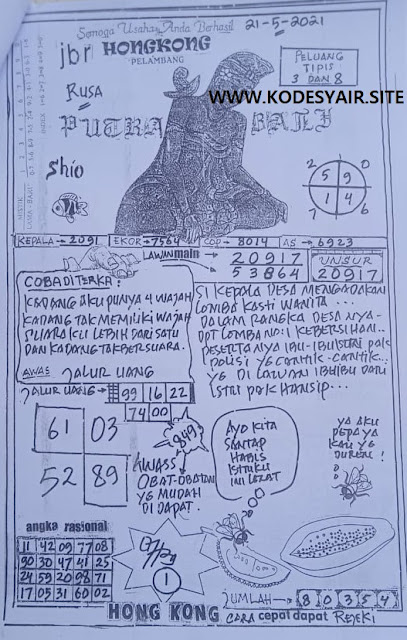 Semoga Usaha Anda Berhasil
21-5-2021
jbr HONGKONG
PELAMBANG
PELUANG
TIPIS
3 DAN 8
RUSA
WWW.KODESYAIR.SITE
PUTRA BALI
Shio
2 0
5 9
1 4
7 6
KEPALA → 2091 EKOR → 7564 COP → 8014 AS → 6923
LAWAN main
20917
53864
UNSUR
20917
COBA DI TERKA:
KADANG AKU PUNYA 4 WAJAH
KADANG TAK MEMILIKI WAJAH
SUARA KU LEBIH DARI SATU
DAN KADANG TAK BERSUARA.
AWAS JALUR UANG
SI KEPALA DESA MENGADAKAN
LOMBA KASTI WANITA...
DALAM RANGKA DESA NYA-
DPT LOMBA NO:1 KEBERSIHAN..
PESERTANYA IBU-IBU ISTRI PAK
POLISI YG CANTIK-CANTIK...
YG DI LAWAN IBU IBU DARI
ISTRI PAK HANSIP...
JALUR UANG → 99 16 22
74 00
61 03
52 89
849
AWASS
OBAT-OBATAN
YG MUDAH
DI DAPAT.
AYO KITA
SANTAP
HABIS
INI LEZAT
YA AKU
PEPAYA
KAU YG
DURIAN!
angka rasional
11 42 09 77 08
90 30 47 41 25
24 59 20 98 71
17 05 31 60 02
1
JUMLAH → 8 0 3 5 4
HONG KONG CARA cepat dapat REJEKI